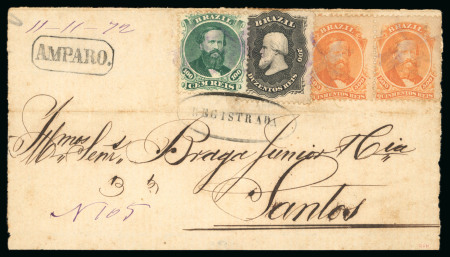 11-11-72
AMPARO.
BRAZIL
100 100
CEM REIS
BRAZIL
200
DUZENTOS REIS
BRAZIL
QUINHENTOS REIS
BRAZIL
QUINHENTOS REIS
REGISTRADA
Braga Junior & Cia
Nº 105
Santos